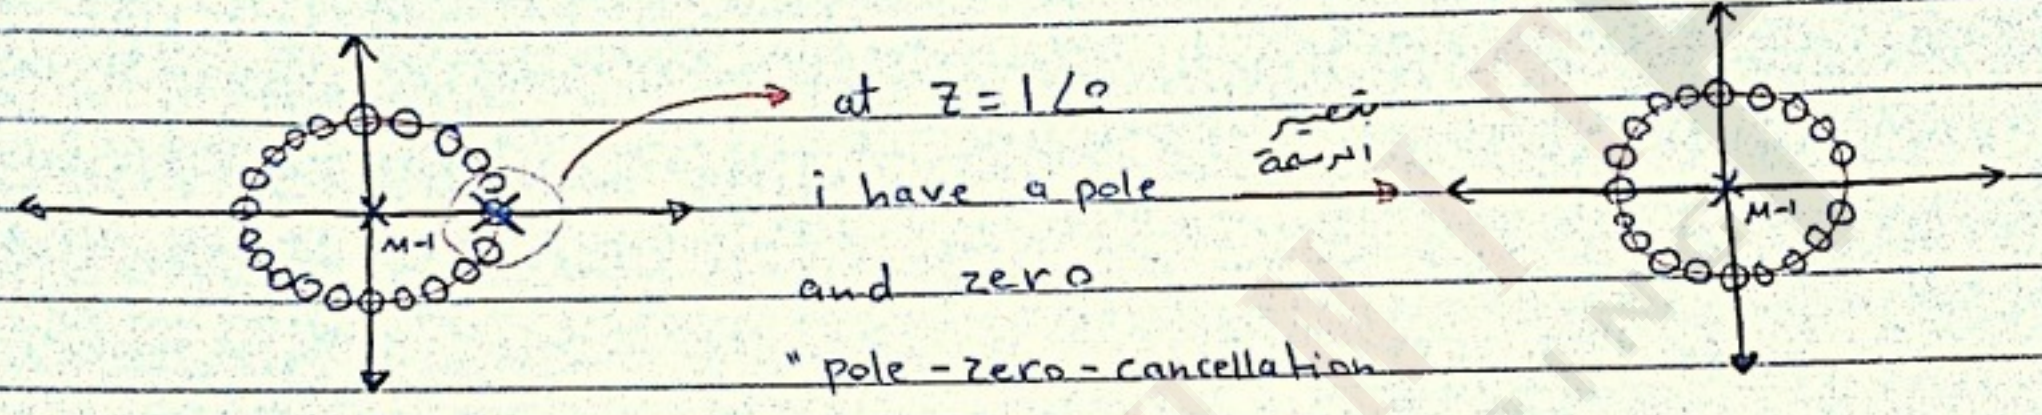 at z = 1∠0
i have a pole
and zero
" pole - zero - cancellation
تصير
الرسمة
M-1
M-1